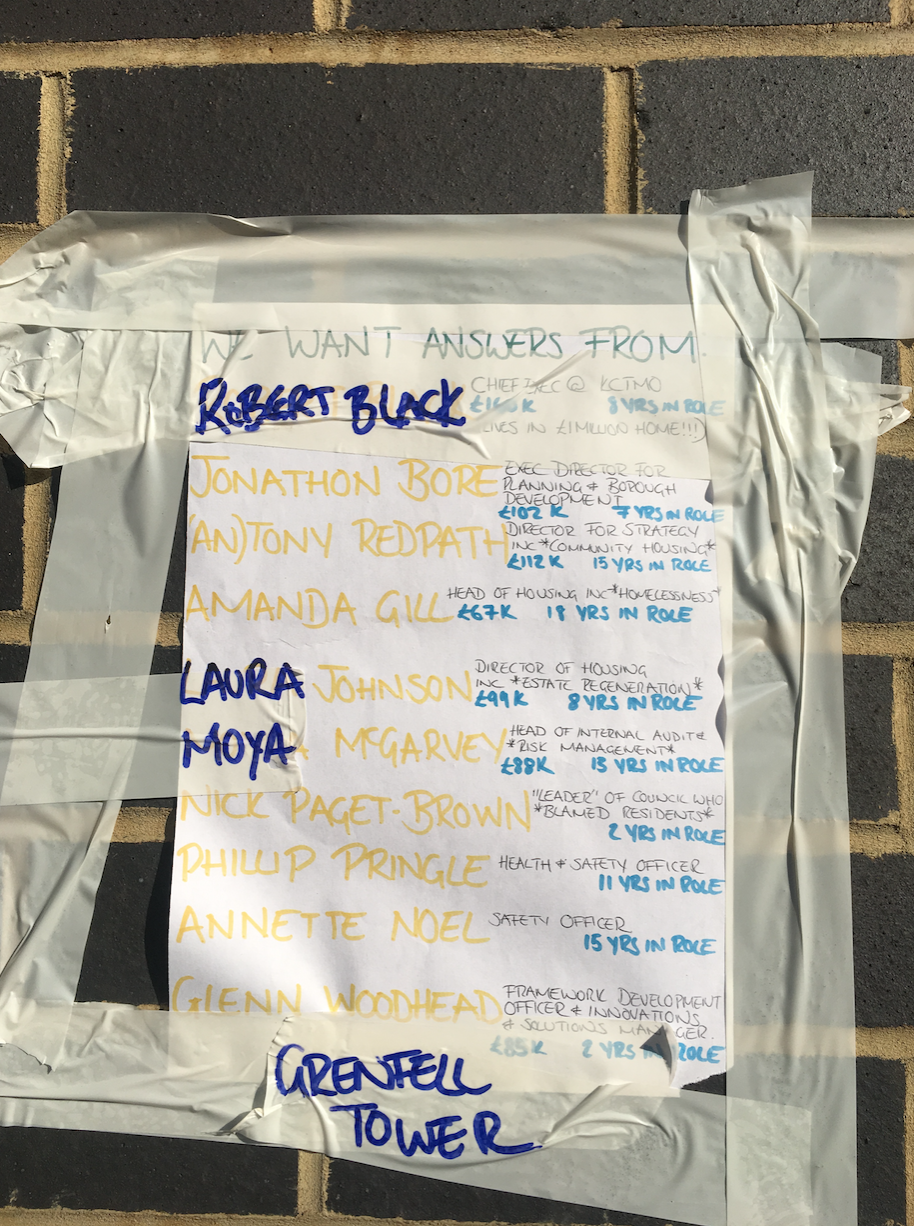 WE WANT ANSWERS FROM
ROBERT BLACK
CHIEF EXEC @ KCTMO
8 YRS IN ROLE
LIVES IN £1 MILLION HOME!!!)
JONATHON BORE
EXEC DIRECTOR FOR
PLANNING & BOROUGH
DEVELOPMENT
£102 K 7 YRS IN ROLE
(AN)TONY REDPATH
DIRECTOR FOR STRATEGY
INC *COMMUNITY HOUSING*
£112K 15 YRS IN ROLE
AMANDA GILL
HEAD OF HOUSING INC *HOMELESSNESS*
£67K 18 YRS IN ROLE
LAURA JOHNSON
DIRECTOR OF HOUSING
INC *ESTATE REGENERATION*
£99K 8 YRS IN ROLE
MOYA McGARVEY
HEAD OF INTERNAL AUDIT &
*RISK MANAGEMENT*
£88K 13 YRS IN ROLE
NICK PAGET-BROWN
"LEADER" OF COUNCIL WHO
*BLAMED RESIDENTS*
2 YRS IN ROLE
PHILLIP PRINGLE
HEALTH & SAFETY OFFICER
11 YRS IN ROLE
ANNETTE NOEL
SAFETY OFFICER
15 YRS IN ROLE
GLENN WOODHEAD
FRAMEWORK DEVELOPMENT
OFFICER & INNOVATIONS
& SOLUTIONS MANAGER.
£85K 2 YRS IN ROLE
GRENFELL
TOWER